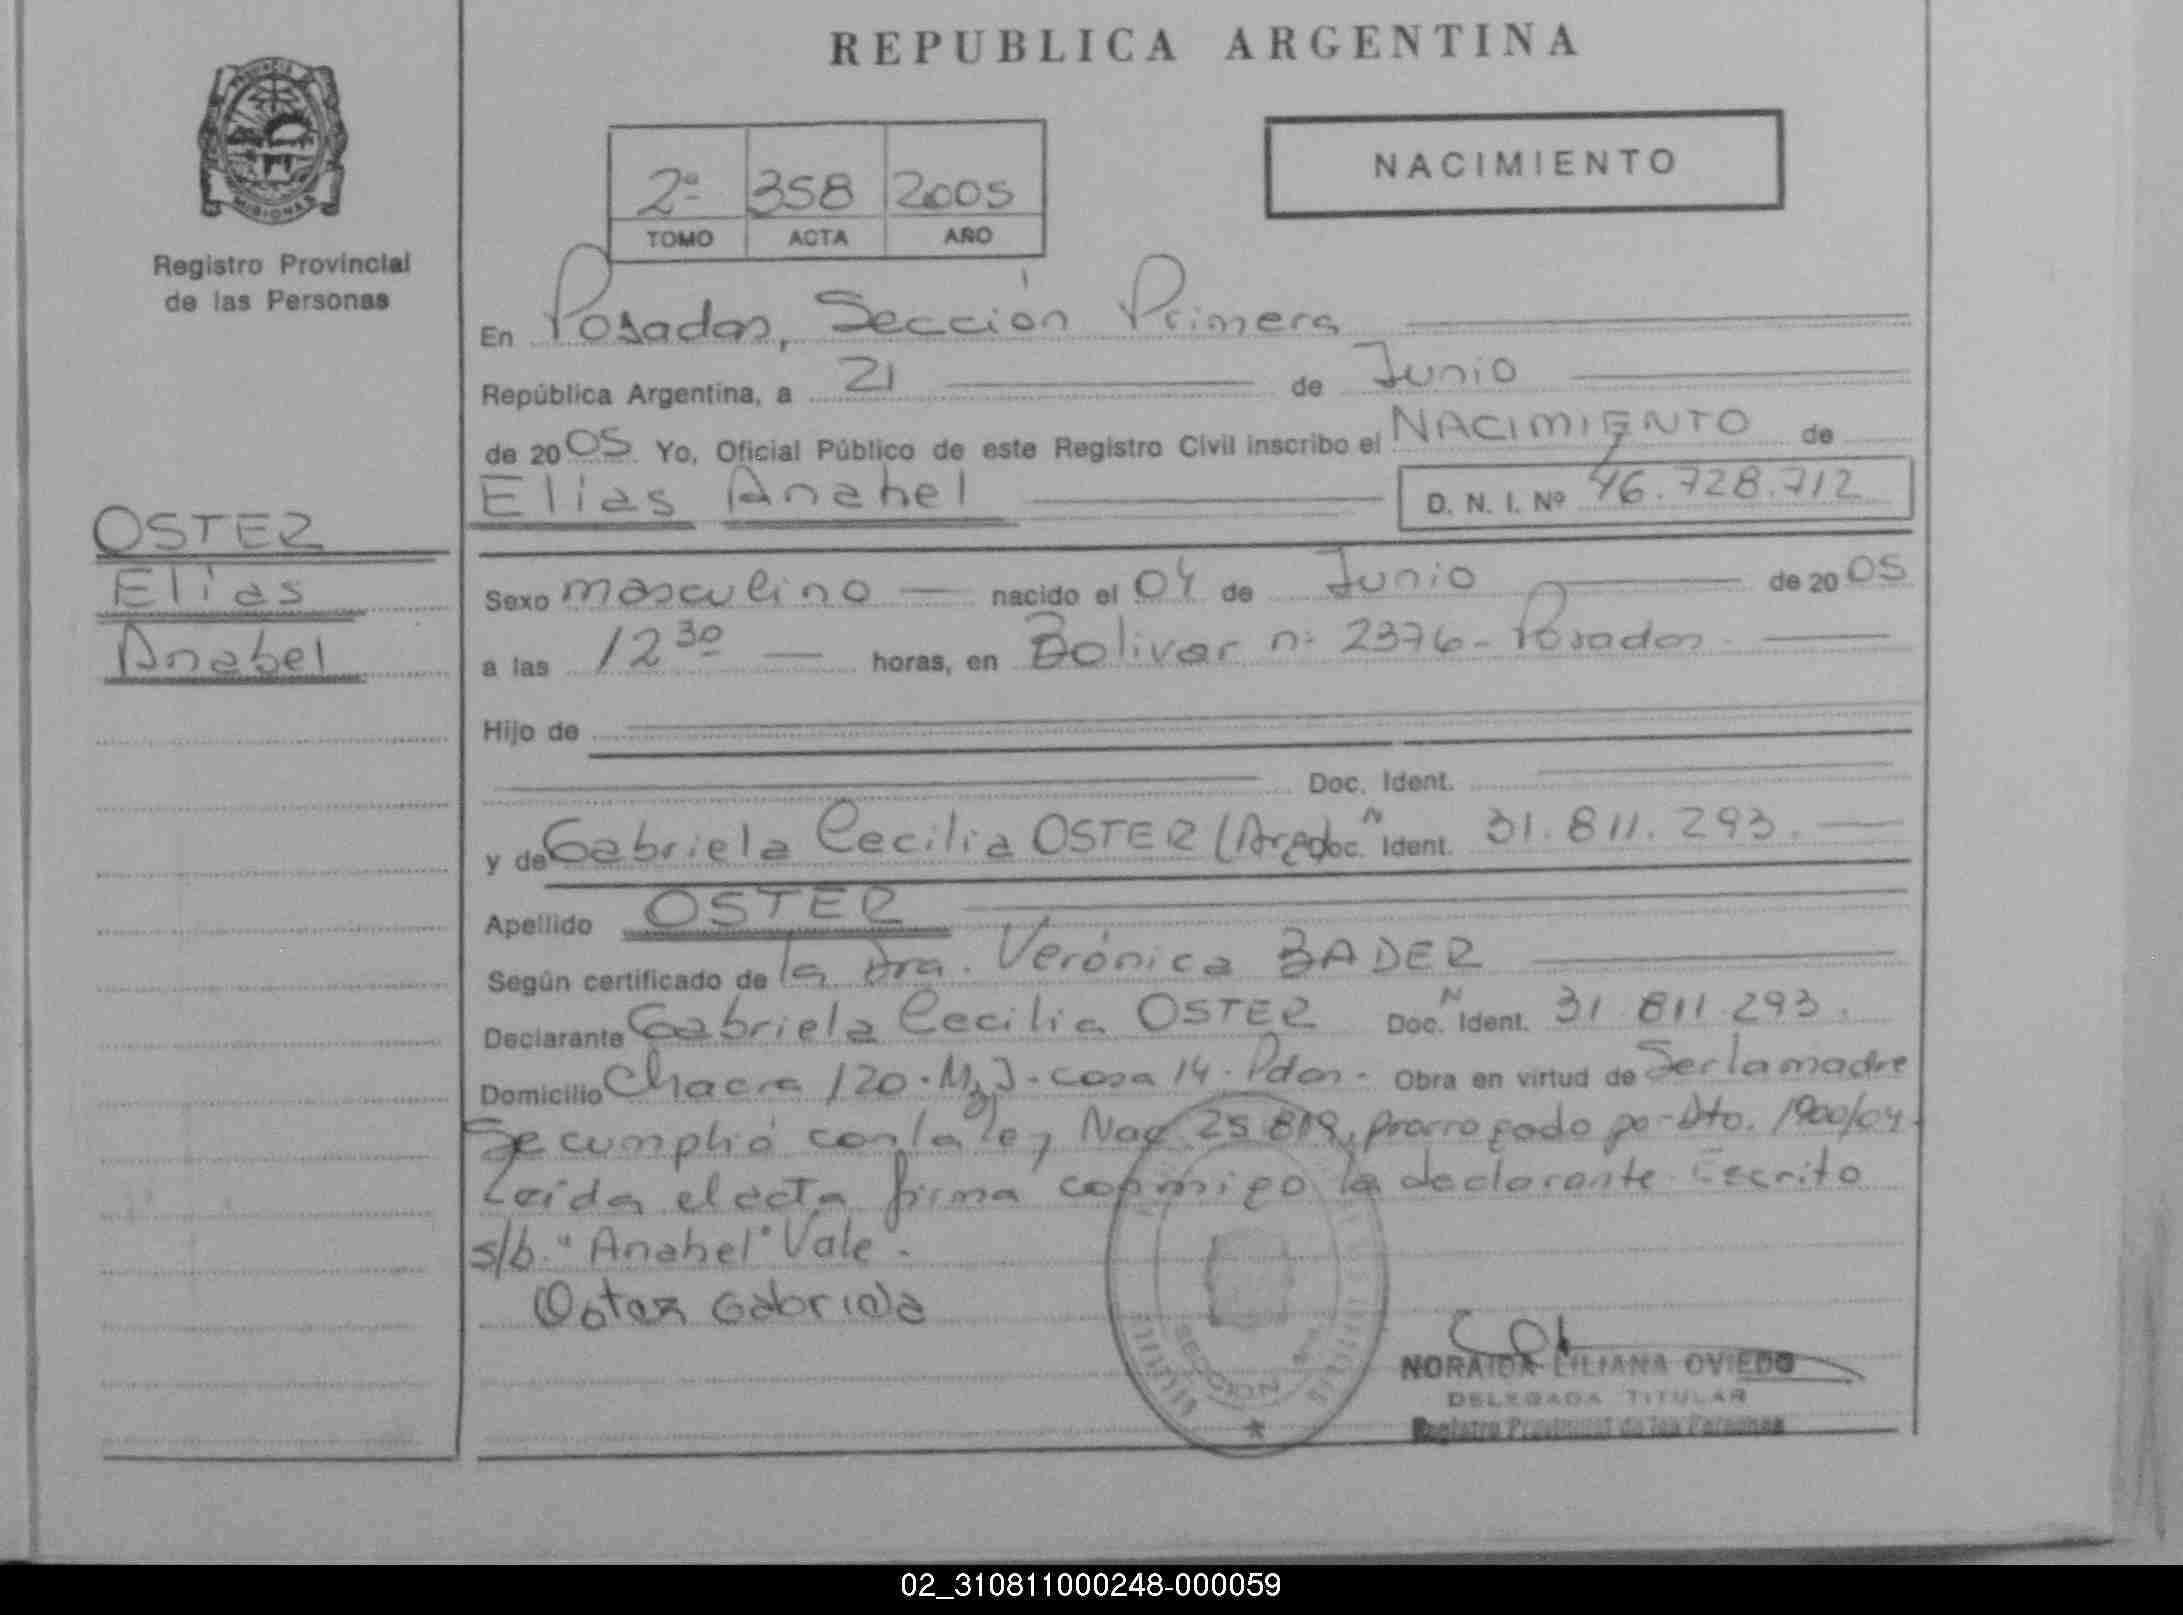 REPUBLICA ARGENTINA
PROVINCIA
MISIONES
Registro Provincial
de las Personas
NACIMIENTO
2ª 358 2005
TOMO ACTA AÑO
En Posadas, Sección Primera
República Argentina, a 21 de Junio
de 2005 Yo, Oficial Público de este Registro Civil inscribo el NACIMIENTO de
Elias Anahel D. N. I. Nº 46.728.712
OSTER
Elias
Anabel
Sexo masculino nacido el 04 de Junio de 2005
a las 12 30 horas, en Bolivar nº 2376 - Posadas -
Hijo de
Doc. Ident.
y de Gabriela Cecilia OSTER (Arg) Doc. N Ident. 31.811.293.
Apellido OSTER
Según certificado de la Dra. Verónica BADER
Declarante Gabriela Cecilia OSTER Doc. N Ident. 31.811.293.
Domicilio Chacra 120 - Mz J - casa 14 - Pdas - Obra en virtud de Ser la madre
Se cumplió con la ley Nac 25.819, prorrogado po- Dto. 1900/04.
Leida el acta firma conmigo la declarante. Escrito
s/b. "Anahel" Vale.
Oster Gabriela
SECCION
NORAIDA LILIANA OVIEDO
DELEGADA TITULAR
Registro Provincial de las Personas
02_310811000248-000059